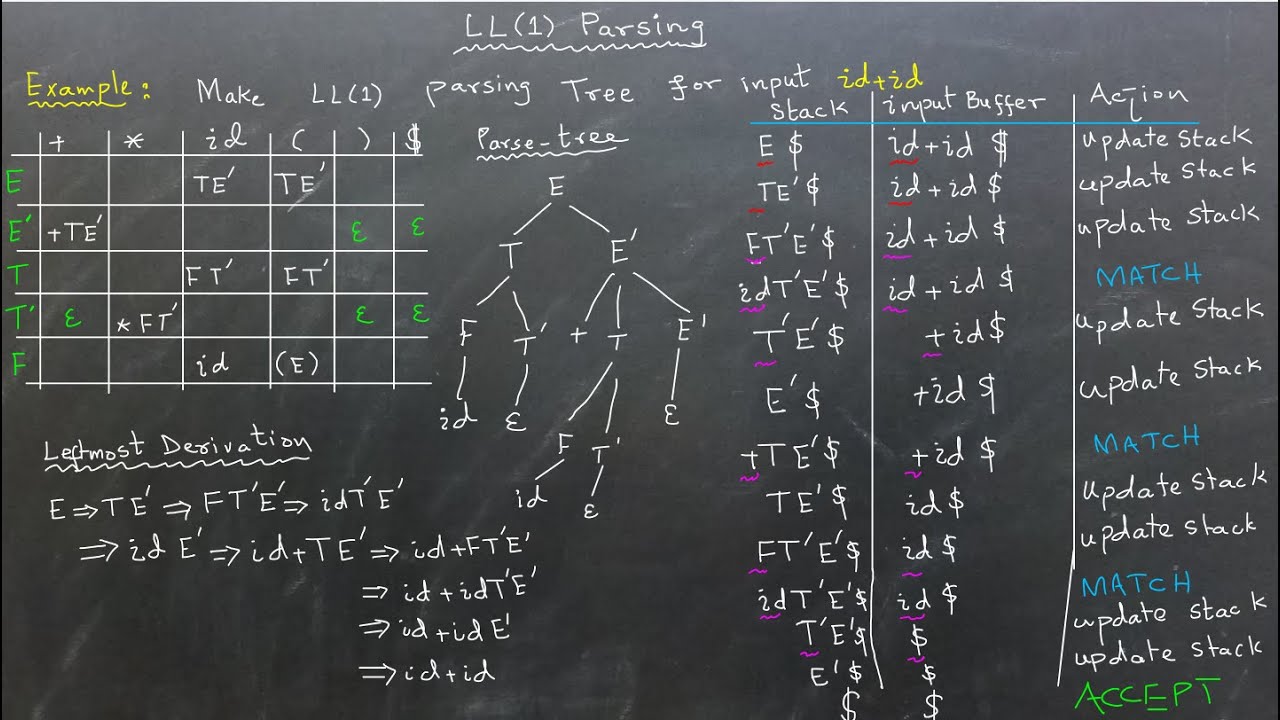 LL(1) Parsing
Example: Make LL(1) parsing Tree for input id+id
+ * id ( ) $
E TE′ TE′
E′ +TE′ ε ε
T FT′ FT′
T′ ε *FT′ ε ε
F id (E)
Leftmost Derivation
E⇒TE′⇒FT′E′⇒idT′E′
⇒id E′⇒id+TE′⇒id+FT′E′
⇒id+idT′E′
⇒id+idE′
⇒id+id
Parse-tree
E
T E′
F T′ + T E′
id ε F T′ ε
id ε
Stack input Buffer Action
E $ id+id $ update Stack
TE′$ id+id $ update Stack
FT′E′$ id+id $ update Stack
idT′E′$ id+id $ MATCH
T′E′$ +id$ update Stack
E′$ +id $ update Stack
+TE′$ +id $ MATCH
TE′$ id$ update Stack
FT′E′$ id$ update Stack
idT′E′$ id $ MATCH
T′E′$ $ update stack
E′$ $ update stack
$ $ ACCEPT